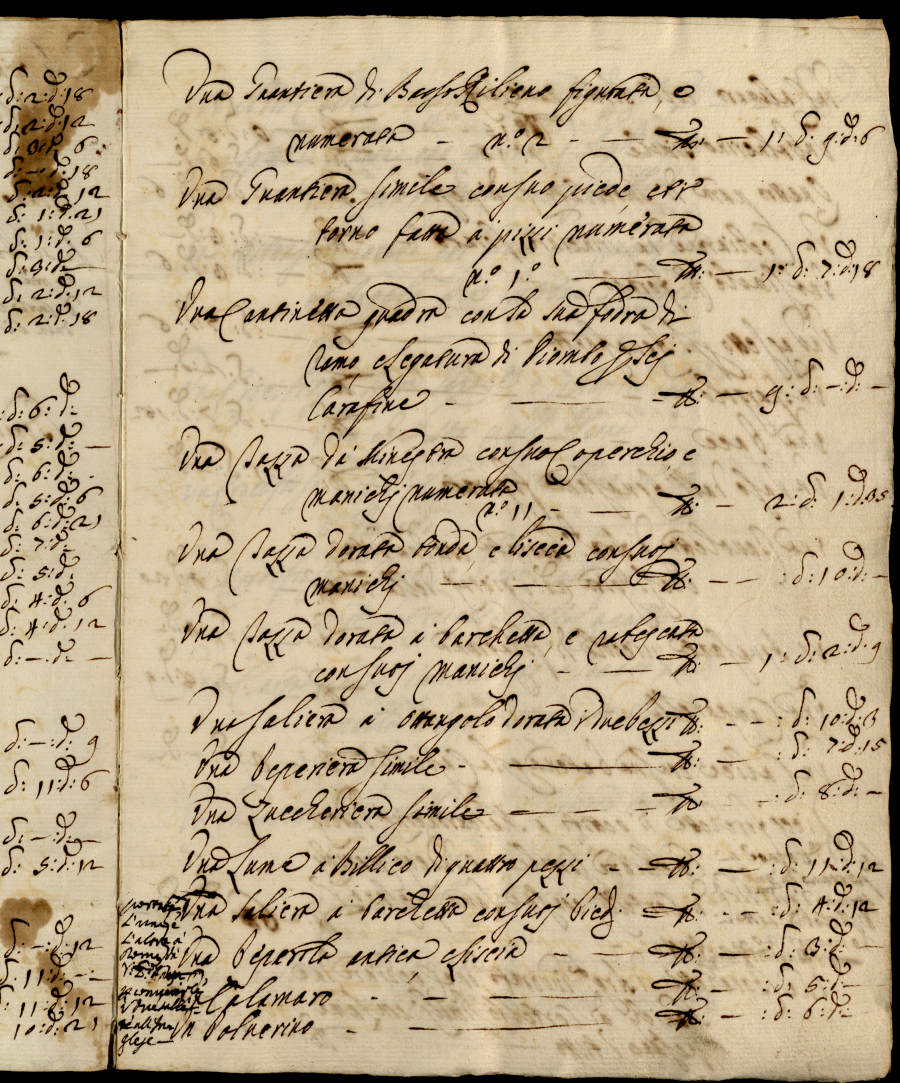 d: 2: d: 18
d: 2: d: 12
d: 3: d: 6
d: – d: 18
d: 2: d: 12
d: 1: d: 21
d: 1: d: 6
d: 3: d: –
d: 2: d: 12
d: 2: d: 18
d: 6: d: –
d: 5: d: –
d: 6: d: –
d: 5: d: 6
d: 6: d: 21
d: 7: d: –
d: 5: d:
d: 4: d: 6
d: 4: d: 12
d: – d: –
d: – d: 9
d: 11: d: 6
d: – d: –
d: 5: d: 12
d: – d: 12
d: 11: d: –
d: 11: d: 12
10: d: 21
Una Guantiera di Basso Rilievo figurata, e
numerata – n.o 2 – – lb: – 1: d: 9: d: 6
Una Guantiera simile con suo piede, e
torno fatta à pizzi numerata
n.o 1.o — lb: – 1: d: 7: d: 18
Una Cantinetta quadra con la sua fodra di
ramo, e legatura di Piombo, e sej
Carafine – — lb: – 9: d: – d: –
Una Tazza dà Minestra con suo Coperchio, e
manichj numerata
n.o 11 – — lb: – 2: d: 1: d:
Una Tazza dorata tonda, e liscia con suoj
manichj — — lb: – – : d: 10: d: –
Una Tazza dorata à barchetta, e
con suoj manichj – – lb: – 1: d: 2: d: 9
Una Saliera à ottangolo dorata lb: – – : d: 10: d: 3
Una Peperiera simile – — lb: – : d: 7: d: 15
Una Zuccheriera simile – – – lb: – : d: 8: d: –
Una Lume à Billico di quattro pezzi – lb: – : d: 11: d: 12
Una Saliera à barchetta con suoj Piedj – lb: – – : d: 4: d: 12
Una Peperola antica e liscia – – lb: – : d: 3: d: –
Un Calamaro – – — lb: – : d: 5: d: –
Un Polverino – — lb: – : d: 6: d: –
L'una è
L'altra à